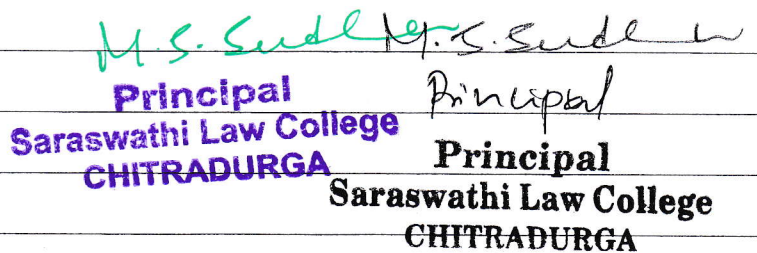 M. S. Sudh
Principal
Saraswathi Law College
CHITRADURGA
M. S. Sudh
Principal
Principal
Saraswathi Law College
CHITRADURGA